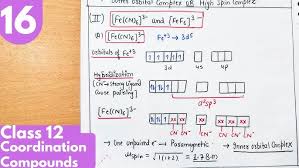 16
Outer orbital Complex OR High Spin Complex
(II) [Fe(CN)₆]³⁻ and [FeF₆]³⁻
(A) [Fe(CN)₆]³⁻ Fe⁺³ → 3d⁵
Orbitals of Fe⁺³
3d 4s 4p
Hybridization
(CN⁻ → Strong ligand
cause pairing)
xx xx xx xx xx xx
CN⁻ CN⁻ CN⁻ CN⁻
d²sp³
→ One unpaired e⁻ → Paramagnetic
→ Inner orbital Complex
μspin = √1(1+2) =
Class 12
Coordination
Compounds